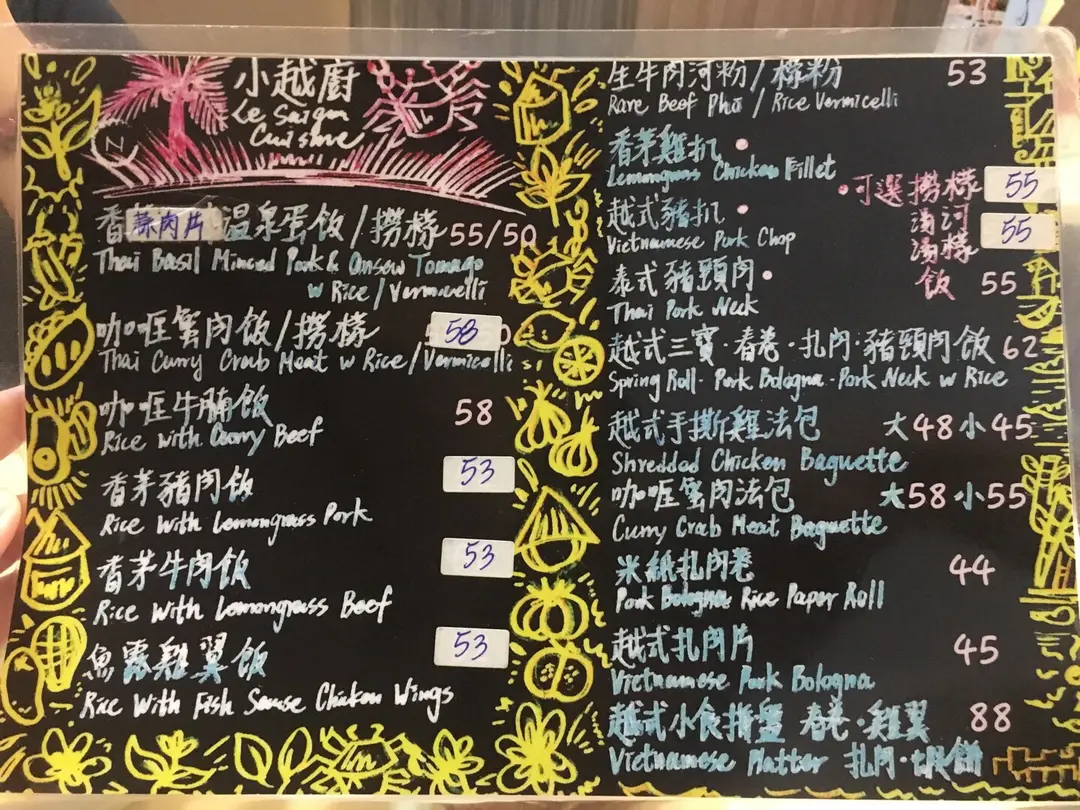 小越廚
Le Saigon
Cuisine
香 蒜肉片 溫泉蛋飯/撈檬 55/50
Thai Basil Minced Pork & Onsen Tomago
w Rice/Vermicelli
咖喱蟹肉飯/撈檬 58
Thai Curry Crab Meat w Rice/Vermicelli
咖喱牛腩飯 58
Rice with Curry Beef
香茅豬肉飯 53
Rice With Lemongrass Pork
香茅牛肉飯 53
Rice With Lemongrass Beef
魚露雞翼飯 53
Rice With Fish Sause Chicken Wings
生牛肉河粉/檬粉 53
Rare Beef Pho / Rice Vermicelli
香茅雞扒 • 55
Lemongrass Chicken Fillet
越式豬扒 • 55
Vietnamese Pork Chop
泰式豬頸肉 • 55
Thai Pork Neck
•可選撈檬
湯河
湯檬
飯
越式三寶·春卷·扎肉·豬頸肉飯 62
Spring Roll · Pork Bologna · Pork Neck w Rice
越式手撕雞法包 大48小45
Shredded Chicken Baguette
咖喱蟹肉法包 大58小55
Curry Crab Meat Baguette
米紙扎肉卷 44
Pork Bologna Rice Paper Roll
越式扎肉片 45
Vietnamese Pork Bologna
越式小食拼盤 春卷·雞翼 88
Vietnamese Platter 扎肉·蝦餅